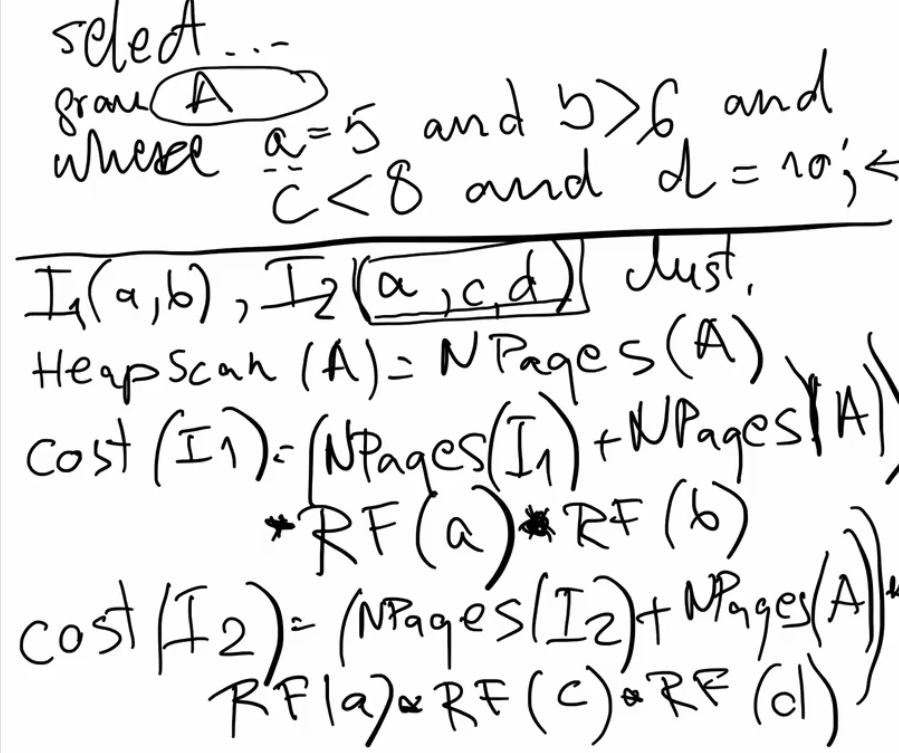 select ...
from A
where a=5 and b>6 and
c<8 and d=10; ←
I1(a,b), I2(a,c,d) clust.
HeapScan(A)=NPages(A)
cost(I1)=(NPages(I1)+NPages(A))
*RF(a)*RF(b)
cost(I2)=(NPages(I2)+NPages(A))*
RF(a)*RF(c)*RF(d)